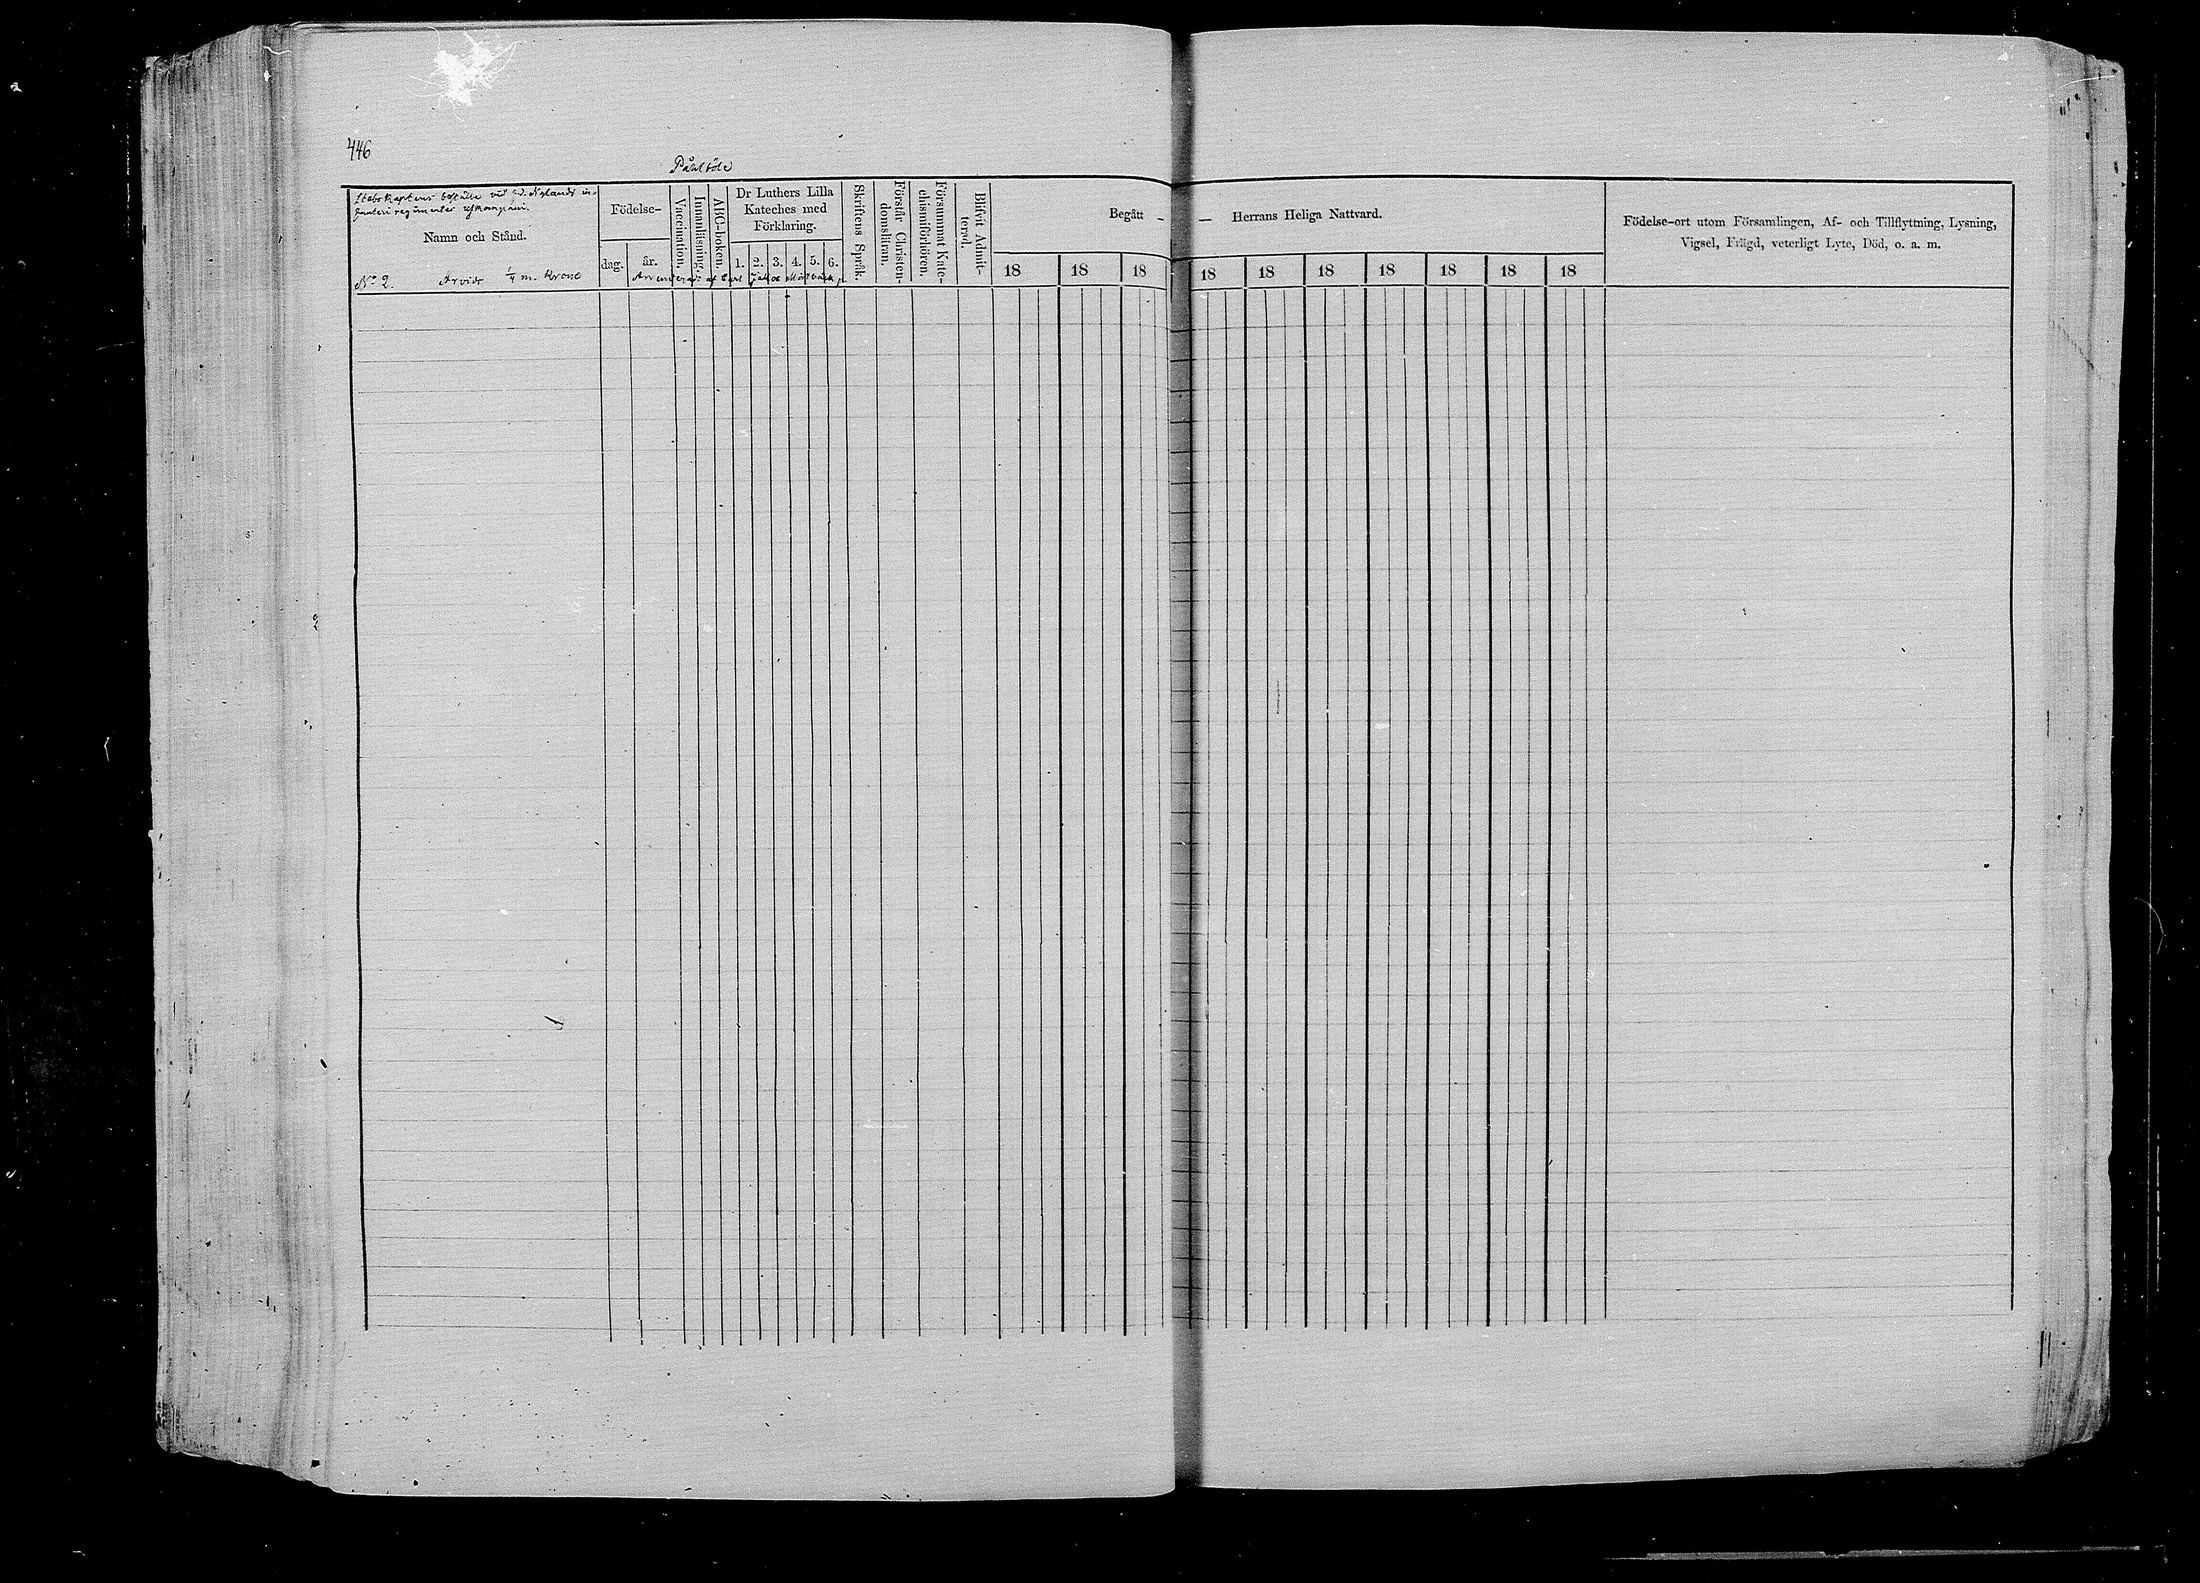 446
Påhlböle
Stabs Kaptens boställe vid f.d. Nylands in-
fanteri regimentes
Namn och Stånd.
Födelse-
dag.
år.
Vaccination.
Innanläsning.
ABC-boken.
Dr Luthers Lilla
Kateches med
Förklaring.
1. 2. 3. 4. 5. 6.
Skriftens Språk.
Förstår Christen-
domsläran.
Försummat Kate-
chismiförhören.
Blifvit Admit-
terad.
Begått – – Herrans Heliga Nattvard.
18 18 18 18 18 18 18 18 18 18
Födelse-ort utom Församlingen, Af- och Tillflyttning, Lysning,
Vigsel, Frägd, veterligt Lyte, Död, o. a. m.
No 2. Arvids 1/4 m. Krono Arrenderas af